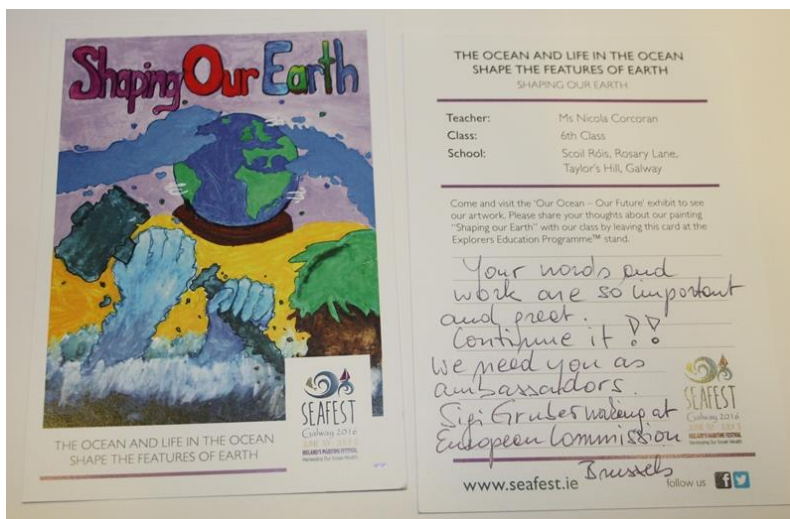 Shaping Our Earth
SEAFEST
Galway 2016
JUNE 30 - JULY 3
IRELAND'S MARITIME FESTIVAL
Harnessing Our Ocean Wealth
THE OCEAN AND LIFE IN THE OCEAN
SHAPE THE FEATURES OF EARTH
THE OCEAN AND LIFE IN THE OCEAN
SHAPE THE FEATURES OF EARTH
SHAPING OUR EARTH
Teacher: Ms Nicola Corcoran
Class: 6th Class
School: Scoil Róis, Rosary Lane,
Taylor's Hill, Galway
Come and visit the 'Our Ocean – Our Future' exhibit to see
our artwork. Please share your thoughts about our painting
"Shaping our Earth" with our class by leaving this card at the
Explorers Education Programme™ stand.
Your words and
work are so important
and great.
Continue it !!
We need you as
ambassadors.
Sigi Gruber working at
European Commission
Brussels
SEAFEST
Galway 2016
JUNE 30 - JULY 3
IRELAND'S MARITIME FESTIVAL
Harnessing Our Ocean Wealth
www.seafest.ie
follow us